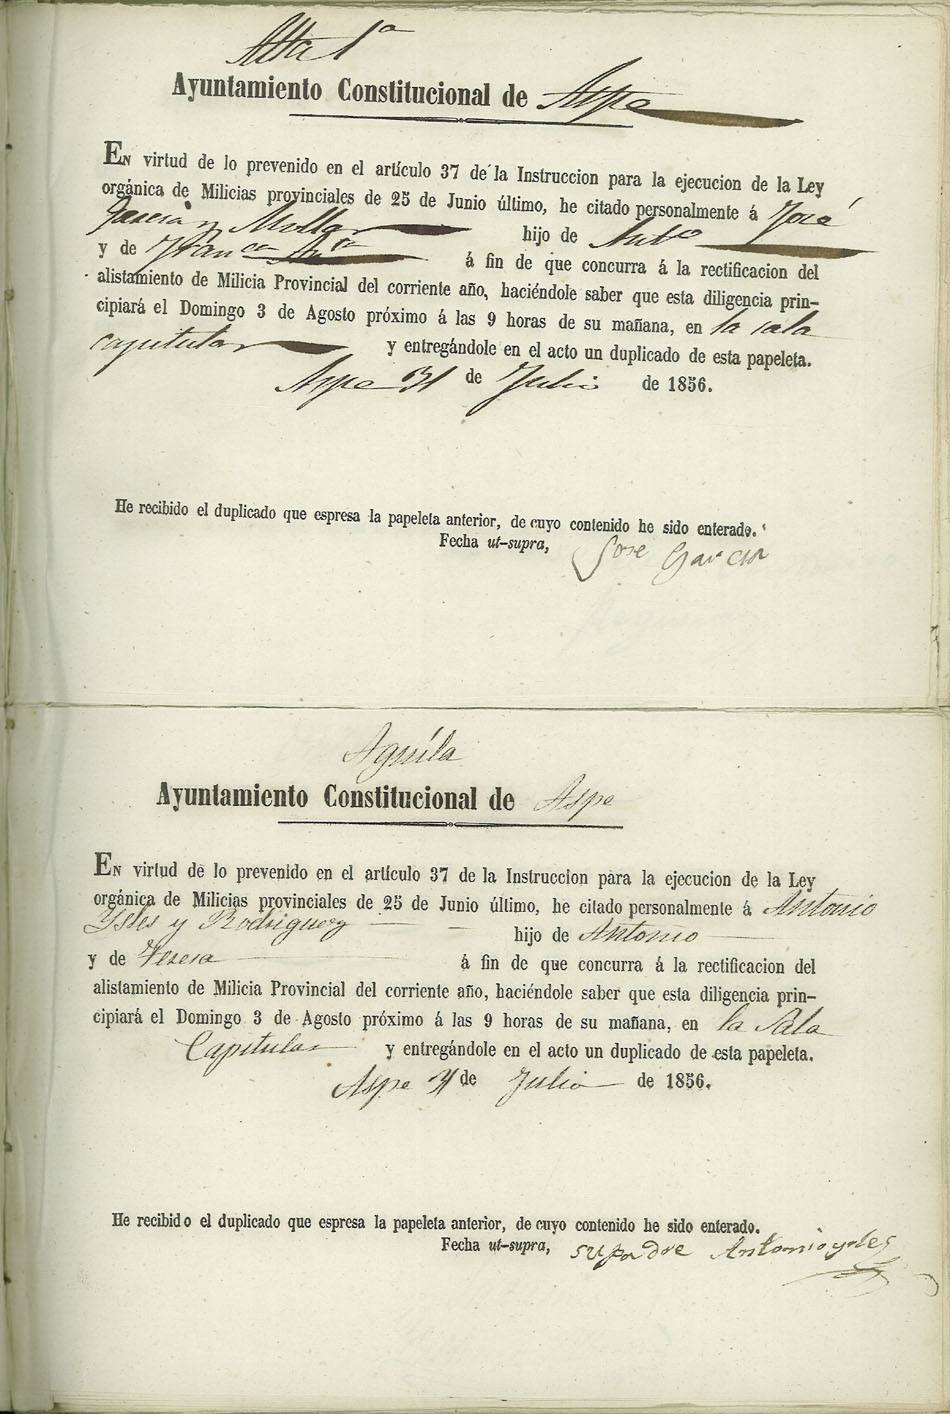 Alta 1ª
Ayuntamiento Constitucional de Aspe
EN virtud de lo prevenido en el artículo 37 de la Instruccion para la ejecucion de la Ley
orgánica de Milicias provinciales de 25 de Junio último, he citado personalmente á José
Garcia y Molla hijo de Antº
y de Franca
á fin de que concurra á la rectificacion del
alistamiento de Milicia Provincial del corriente año, haciéndole saber que esta diligencia prin-
cipiará el Domingo 3 de Agosto próximo á las 9 horas de su mañana, en la sala
capitular y entregándole en el acto un duplicado de esta papeleta.
Aspe 31 de Julio de 1856.
He recibido el duplicado que espresa la papeleta anterior, de cuyo contenido he sido enterado.
Fecha ut-supra, Jose Garcia
Aguila
Ayuntamiento Constitucional de Aspe
EN virtud de lo prevenido en el artículo 37 de la Instruccion para la ejecucion de la Ley
orgánica de Milicias provinciales de 25 de Junio último, he citado personalmente á Antonio
Ysles y Rodriguez hijo de Antonio
y de Teresa á fin de que concurra á la rectificacion del
alistamiento de Milicia Provincial del corriente año, haciéndole saber que esta diligencia prin-
cipiará el Domingo 3 de Agosto próximo á las 9 horas de su mañana, en la Sala
Capitular y entregándole en el acto un duplicado de esta papeleta.
Aspe 31 de Julio de 1856.
He recibido el duplicado que espresa la papeleta anterior, de cuyo contenido he sido enterado.
Fecha ut-supra, su padre Antonio ysles